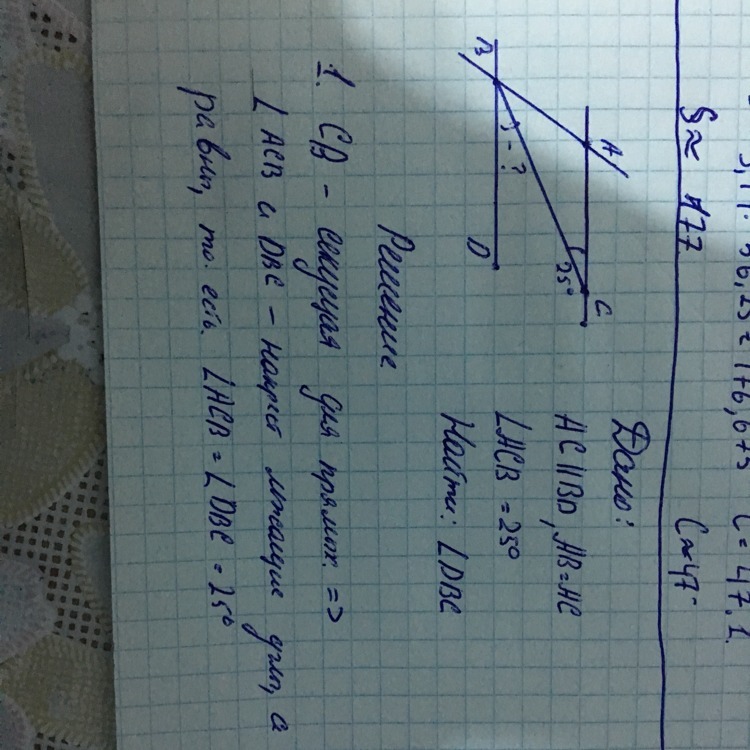 C = 47.1.
C ≈ 47
§ ≈ 177
Дано:
AC || BD, AB = AC
∠ACB = 25°
Найти: ∠DBC
A
C
25°
B
? - ?
D
Решение
1. CB - секущая для прямых. =>
∠ACB и DBC - накрест лежащие углы, а
равны, то есть ∠ACB = ∠DBC = 25°